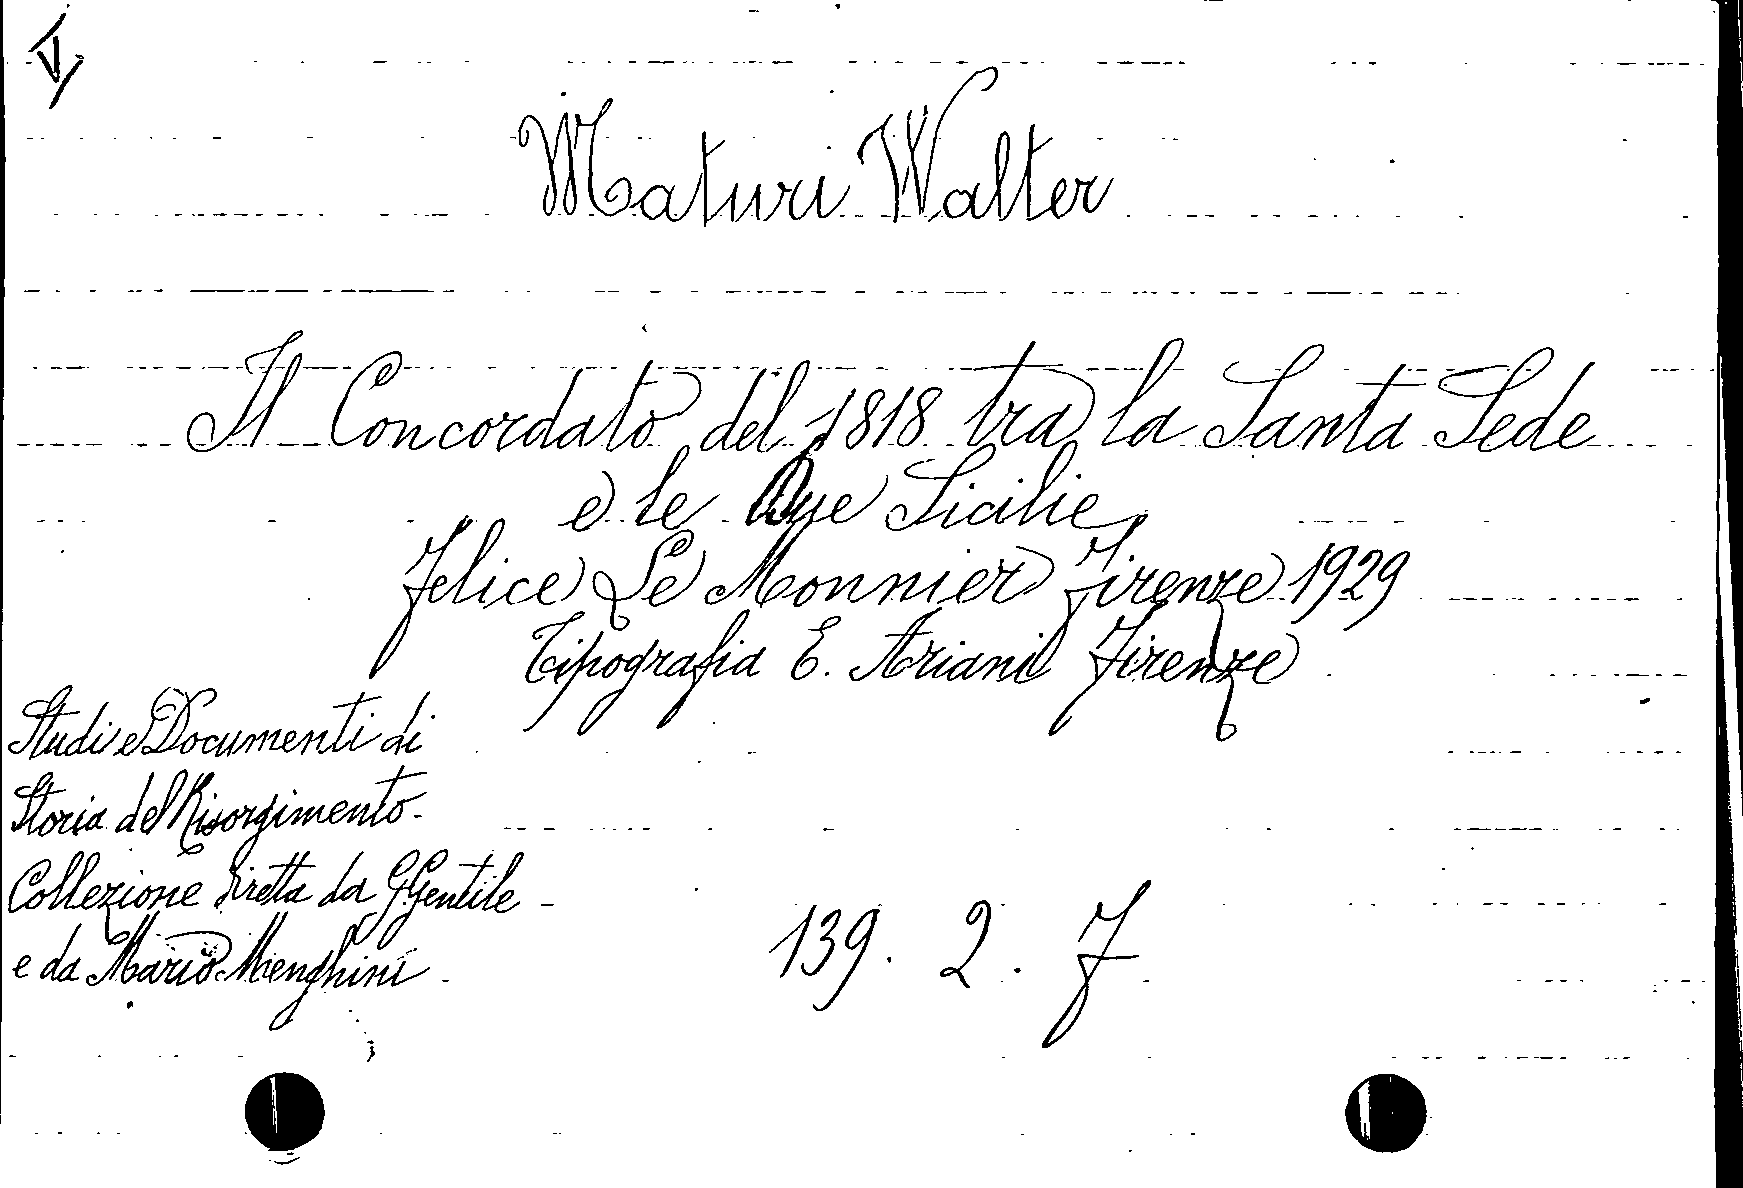 V
Maturi Walter
Il Concordato del 1818 tra la Santa Sede
e le Due Sicilie
Felice Le Monnier Firenze 1929
Tipografia E. Ariani Firenze
Studi e Documenti di
Storia del Risorgimento.
Collezione diretta da G. Gentile
e da Mario Menghini
139. 2. F